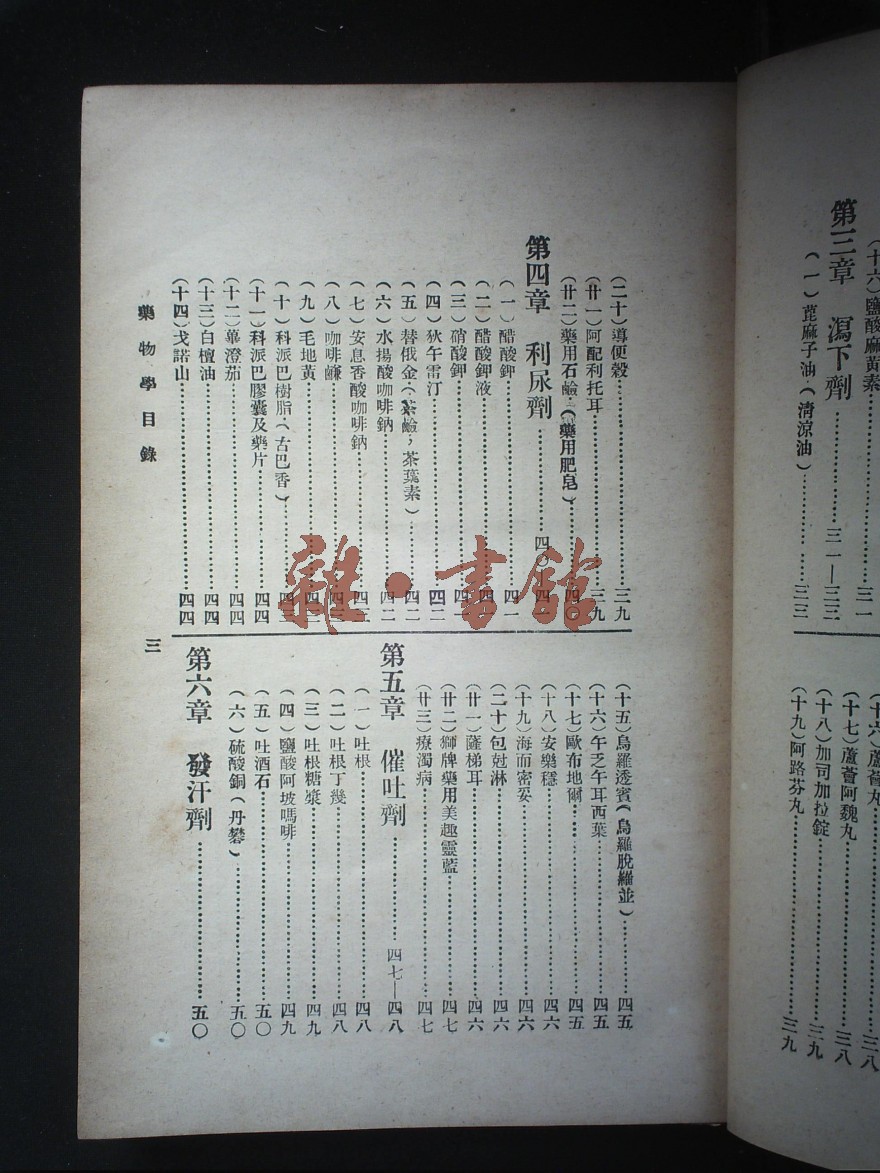 (十六)鹽酸麻黃素……三一
第三章 瀉下劑……三一—三三
(一)萞麻子油·(清涼油)……三三
(十六)蘆薈丸……三八
(十七)蘆薈阿魏丸……三八
(十八)加司加拉錠……三九
(十九)阿路芬丸……三九
(二十)導便穀……三九
(廿一)阿配利托耳……三九
(廿二)藥用石鹼·(藥用肥皂)……四〇
第四章 利尿劑
(一)醋酸鉀……四一
(二)醋酸鉀液
(三)硝酸鉀
(四)狄午雷汀……四二
(五)替俄金(茶鹼,茶葉素)……四二
(六)水揚酸咖啡鈉……四二
(七)安息香酸咖啡鈉
(八)咖啡鹻
(九)毛地黃
(十)科派巴樹脂·(古巴香)
(十一)科派巴膠囊及藥片……四四
(十二)蓽澄茄……四四
(十三)白檀油……四四
(十四)戈諾山……四四
(十五)烏羅透賓(烏羅脫羅並)……四五
(十六)午乏午耳西葉……四五
(十七)歐布地爾……四五
(十八)安樂穩……四六
(十九)海而密妥……四六
(二十)包尅淋……四六
(廿一)薩梯耳……四六
(廿二)獅牌藥用美趣靈藍……四七
(廿三)療濁病……四七
第五章 催吐劑……四七—四八
(一)吐根……四八
(二)吐根丁幾……四八
(三)吐根糖漿……四九
(四)鹽酸阿坡嗎啡……四九
(五)吐酒石……五〇
(六)硫酸銅(丹礬)……五〇
第六章 發汗劑……五〇
藥物學目錄 三
雜·書館